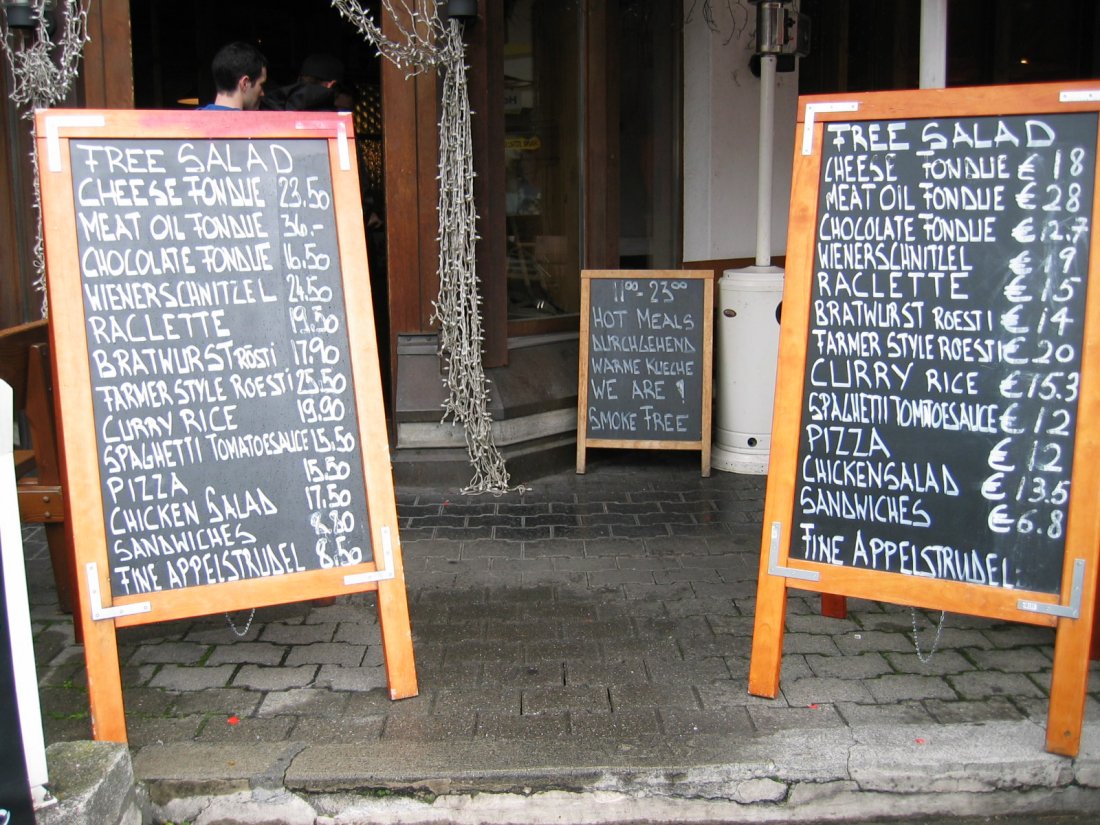 FREE SALAD
CHEESE FONDUE 23.50
MEAT OIL FONDUE 36.-
CHOCOLATE FONDUE 16.50
WIENERSCHNITZEL 24.50
RACLETTE 19.50
BRATWURST RÖSTI 17.90
FARMER STYLE ROESTI 25.50
CURRY RICE 19.90
SPAGHETTI TOMATOESAUCE 15.50
PIZZA 15.50
CHICKEN SALAD 17.50
SANDWICHES 8.80
FINE APPELSTRUDEL 8.50
1100 - 2300
HOT MEALS
DURCHGEHEND
WARME KUECHE
WE ARE !
SMOKE FREE
FREE SALAD
CHEESE FONDUE € 18
MEAT OIL FONDUE € 28
CHOCOLATE FONDUE € 12.7
WIENERSCHNITZEL € 19
RACLETTE € 15
BRATWURST ROESTI € 14
FARMER STYLE ROESTI € 20
CURRY RICE €15.3
SPAGHETTI € 12
PIZZA € 12
CHICKENSALAD € 13.5
SANDWICHES € 6.8
FINE APPELSTRUDEL